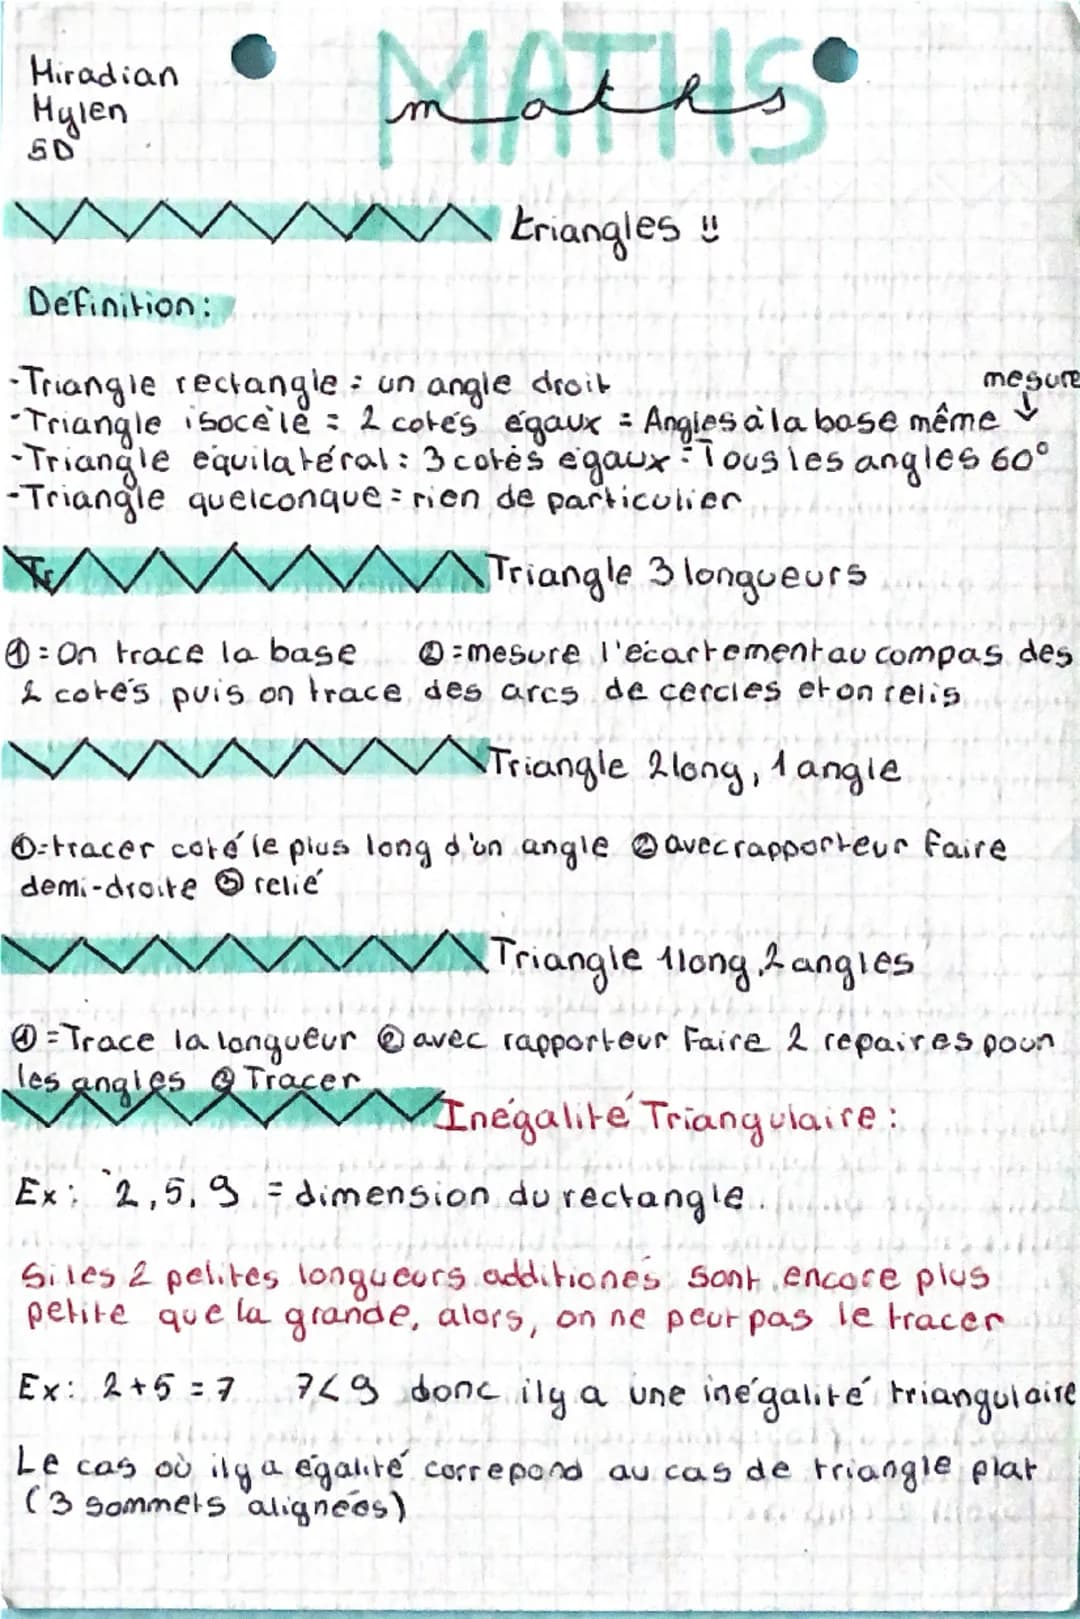 Miradian
Mylen
5D
MATHS
maths
triangles !!
Définition:
mesure
-Triangle rectangle = un angle droit
-Triangle isocèle = 2 cotés égaux = Angles à la base même ↓
-Triangle équilatéral: 3 cotés égaux = Tous les angles 60°
-Triangle quelconque = rien de particulier
Tr
Triangle 3 longueurs
① = On trace la base ② = mesure l'écartement au compas des
2 cotés puis on trace des arcs de cercles et on relis
Triangle 2 long, 1 angle
① = tracer coté le plus long d'un angle ② avec rapporteur faire
demi-droite ③ relié
Triangle 1 long, 2 angles
① = Trace la longueur ② avec rapporteur Faire 2 repaires pour
les angles ③ Tracer
Inégalité Triangulaire :
Ex: 2, 5, 9 = dimension du rectangle.
Si les 2 petites longueurs additionés sont encore plus
petite que la grande, alors, on ne peut pas le tracer
Ex: 2+5 = 7 7<9 donc il y a une inégalité triangulaire
Le cas où il y a égalité correpond au cas de triangle plat
(3 sommets alignées)